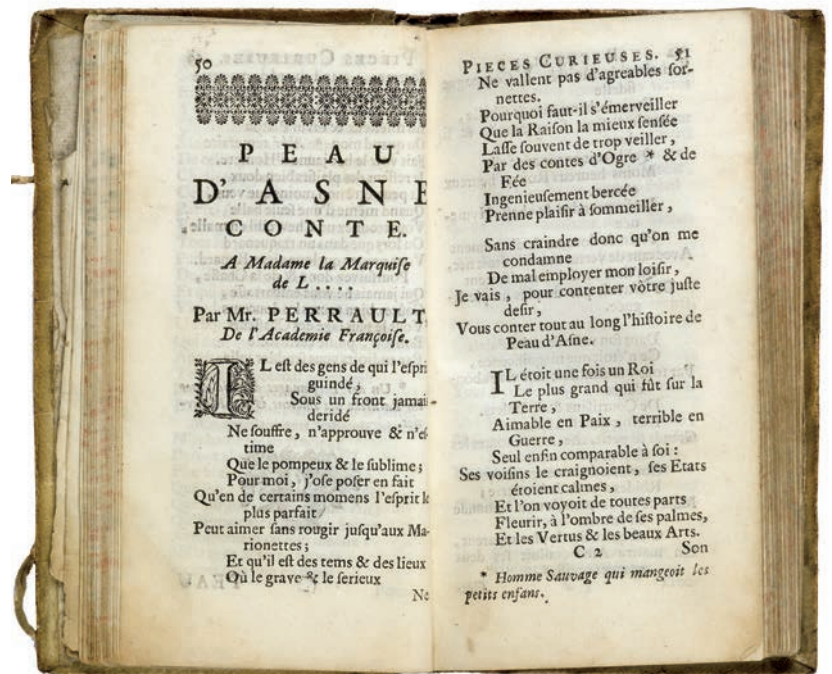 50
PEAU
D'ASNE
CONTE.
A Madame la Marquiſe
de L....
Par Mr. PERRAULT,
De l'Academie Françoiſe.
IL eſt des gens de qui l'eſpri
guindé,
Sous un front jamai-
deridé
Ne ſouffre, n'approuve & n'eſ-
time
Que le pompeux & le ſublime;
Pour moi, j'oſe poſer en fait
Qu'en de certains momens l'eſprit le
plus parfait
Peut aimer ſans rougir juſqu'aux Ma-
rionettes;
Et qu'il eſt des tems & des lieux
Où le grave & le ſerieux
Ne
PIECES CURIEUSES. 51
Ne vallent pas d'agreables ſor-
nettes.
Pourquoi faut-il s'émerveiller
Que la Raiſon la mieux ſenſée
Laſſe ſouvent de trop veiller,
Par des contes d'Ogre * & de
Fée
Ingenieuſement bercée
Prenne plaiſir à ſommeiller,
Sans craindre donc qu'on me
condamne
De mal employer mon loiſir,
Je vais, pour contenter vôtre juſte
deſir,
Vous conter tout au long l'hiſtoire de
Peau d'Aſne.
IL étoit une fois un Roi
Le plus grand qui fût ſur la
Terre,
Aimable en Paix, terrible en
Guerre,
Seul enfin comparable à ſoi:
Ses voiſins le craignoient, ſes Etats
étoient calmes,
Et l'on voyoit de toutes parts
Fleurir, à l'ombre de ſes palmes,
Et les Vertus & les beaux Arts.
C 2 Son
* Homme Sauvage qui mangeoit les
petits enfans.